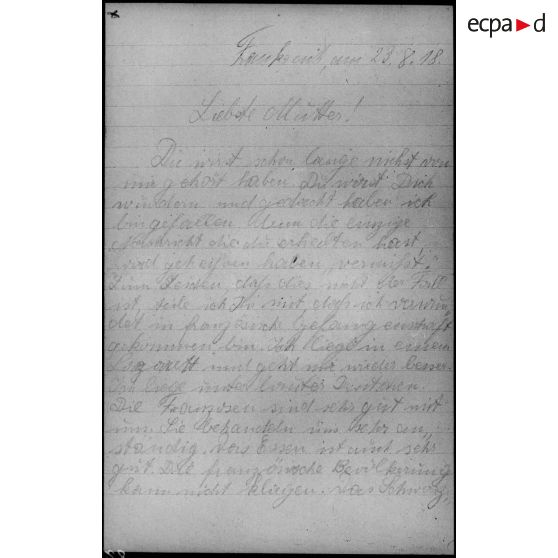 ecpad
Frankreich, am 23.8.18.
Liebste Mutter!
Du wirst schon lange nichst von
mir gehört haben. Du wirst Dich
wundern und gedacht haben ich
bin gefallen. Denn die einzige
Nachricht die du erhielten hast,
wird geheißen haben „vermißt“.
Zum Besten, daß dies nicht der Fall
ist, teile ich Dir mit daß ich verwun-
det in französische Gefangenschaft
gekommen bin. Ich liege in einem
Lazarett und geht mir wieder besser.
Ich liege unter lauter Deutschen.
Die Franzosen sind sehr gut mit
uns. Sie behandeln uns sehr an-
ständig. Das Essen ist auch sehr
gut. Die französische Bevölkerung
kann nicht klagen. Das Schwarz